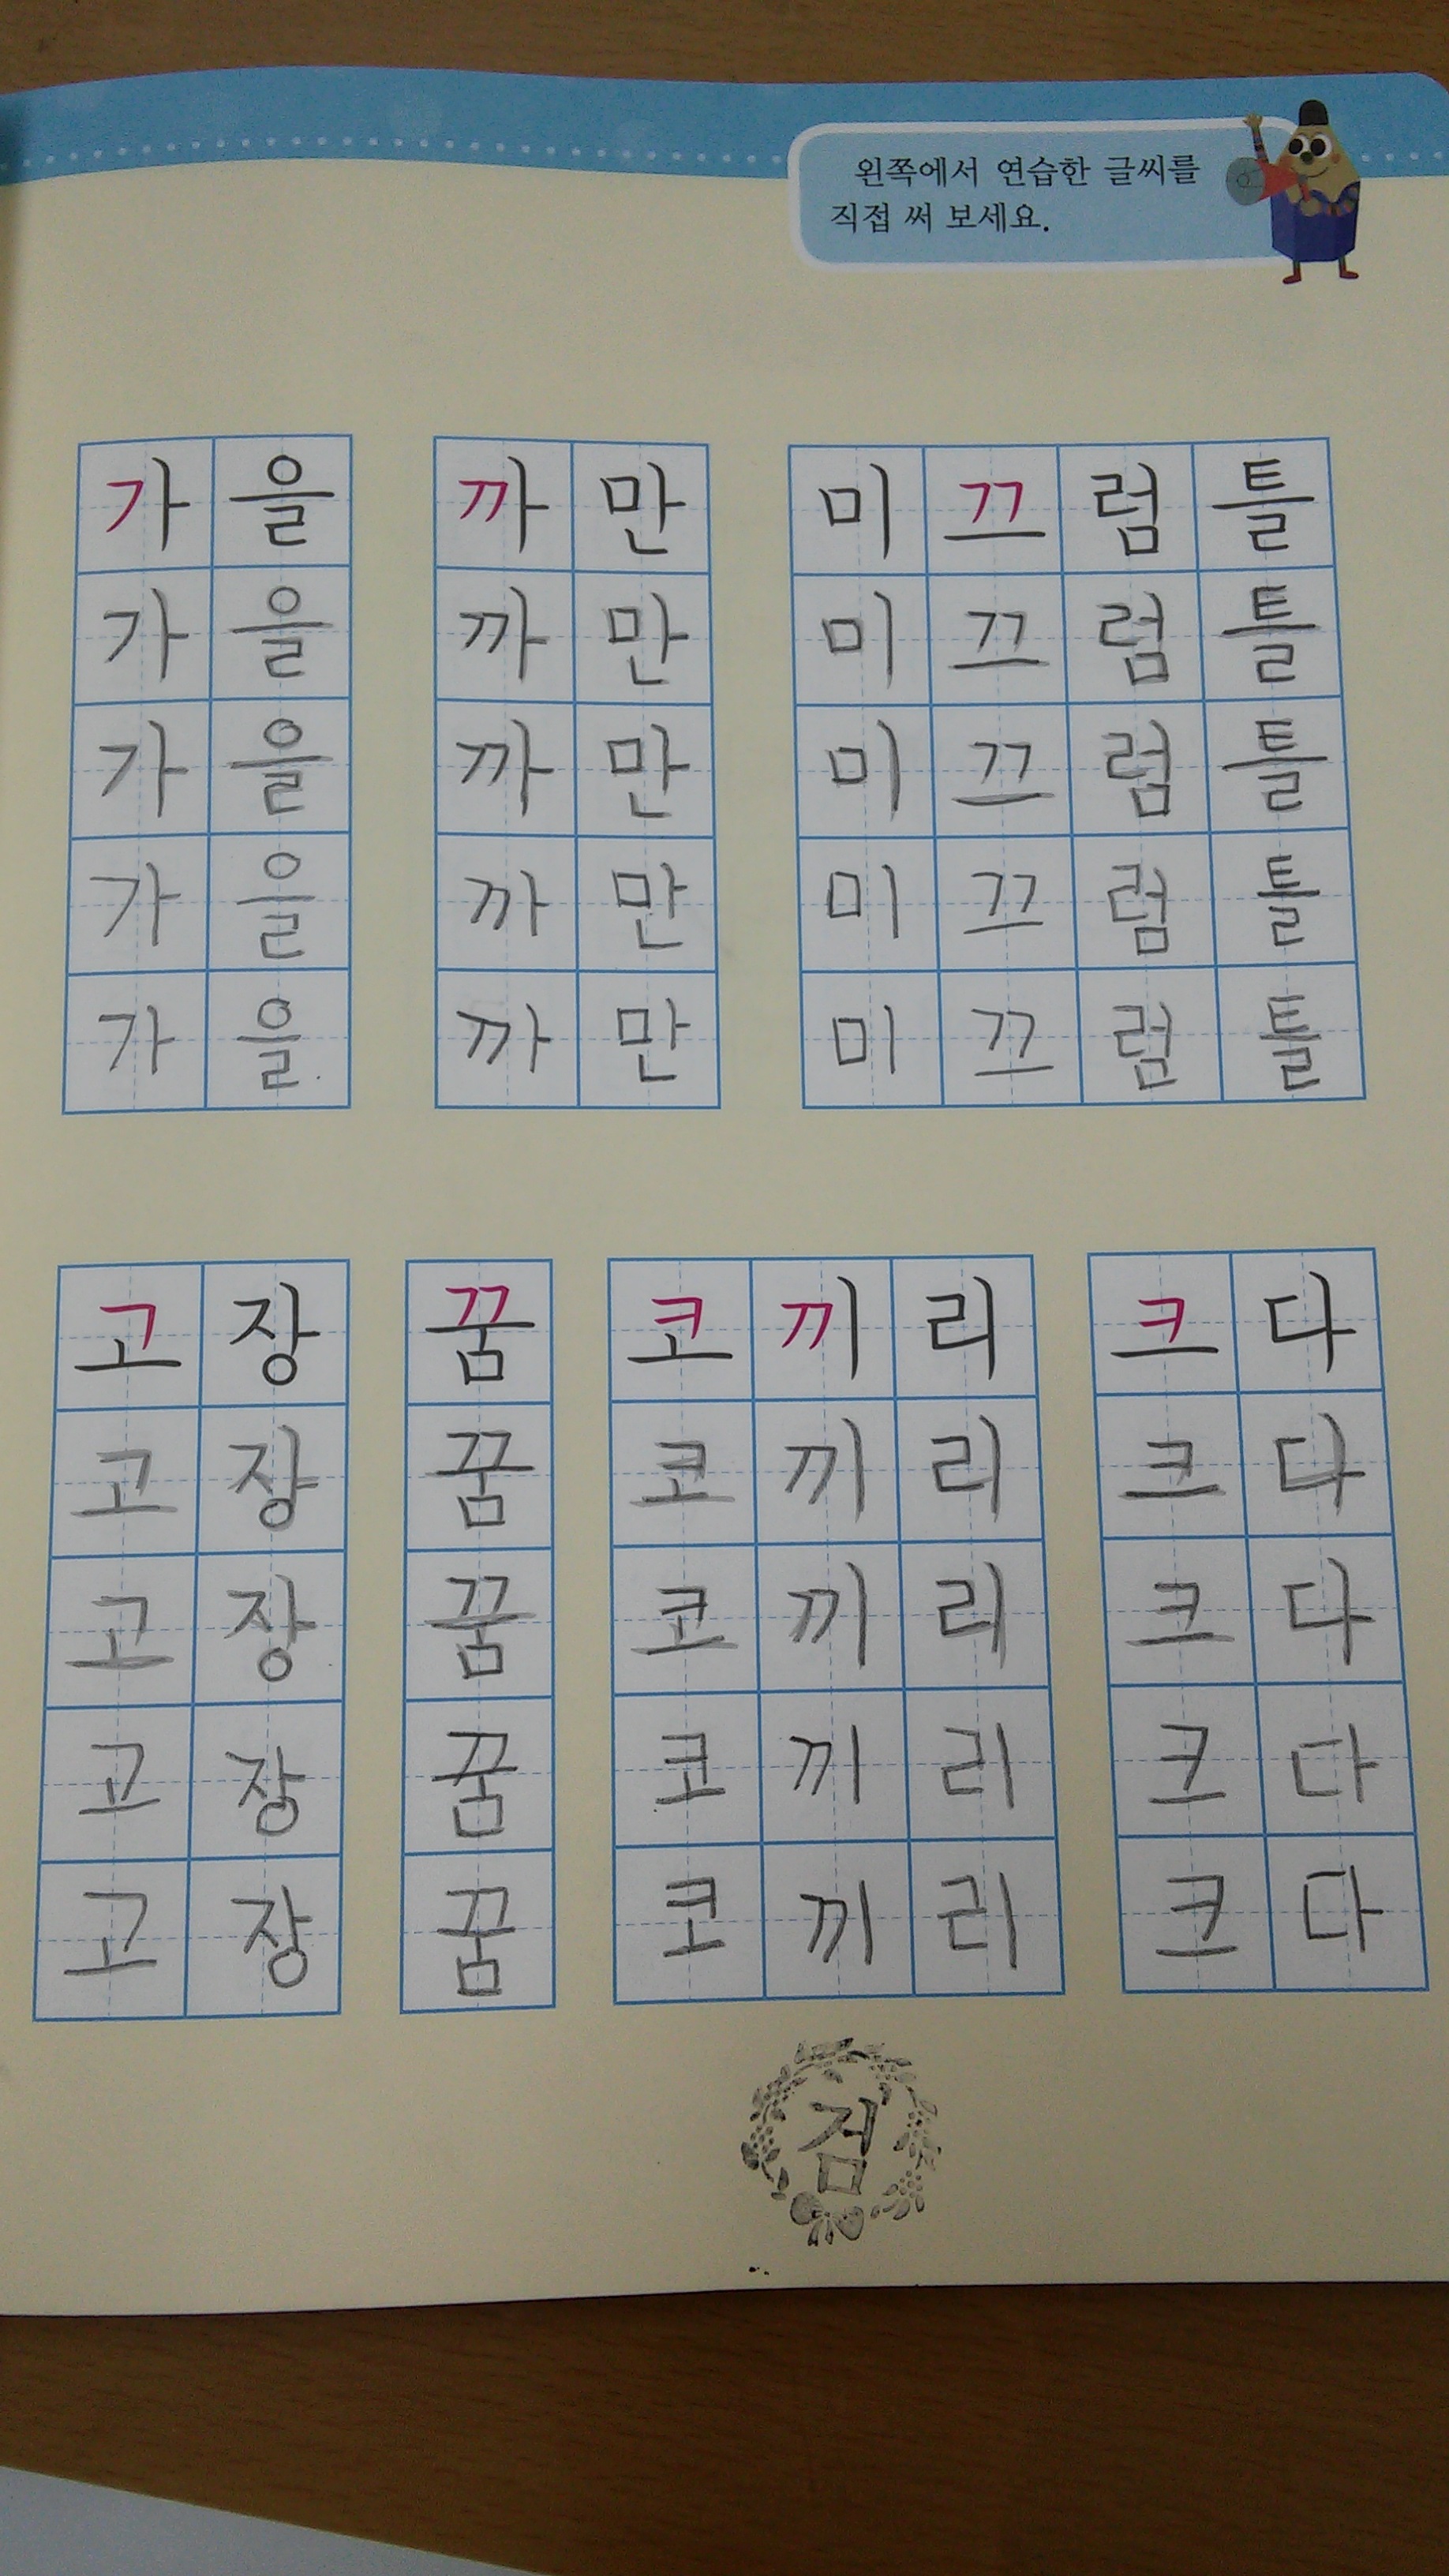 왼쪽에서 연습한 글씨를
직접 써 보세요.
가을 까만 미끄럼틀
가을 까만 미끄럼틀
가을 까만 미끄럼틀
가을 까만 미끄럼틀
가을 까만 미끄럼틀
고장 꿈 코끼리 크다
고장 꿈 코끼리 크다
고장 꿈 코끼리 크다
고장 꿈 코끼리 크다
고장 꿈 코끼리 크다
검